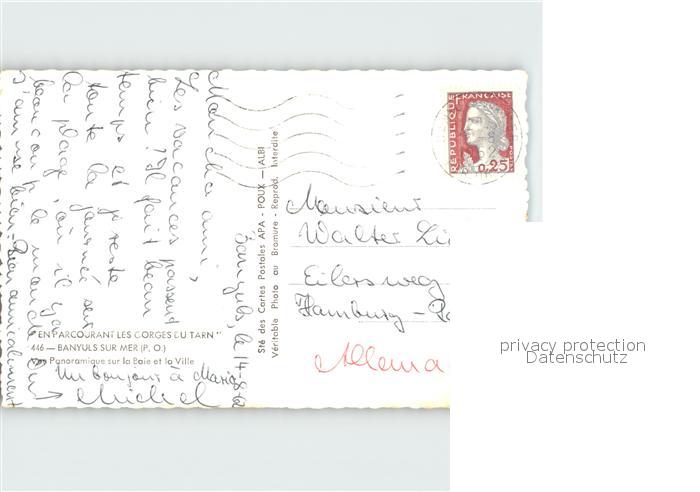 Banyuls, le 14-8-62
Mon cher ami,
Les vacances passent
bien! Il fait beau
temps et je reste
toute la journée sur
la plage, où il y a
beaucoup de monde où
j'amuse bien. Bien amicalement
Un bonjour à Maria
Michel
"EN PARCOURANT LES GORGES DU TARN"
446 — BANYULS SUR MER (P. O.)
Vue Panoramique sur la Baie et la Ville
Sté des Cartes Postales APA - POUX — ALBI
Véritable Photo au Bromure - Reprod. Interdite
REPUBLIQUE FRANÇAISE
0,25
Monsieur
Walter
Eilersweg
Hamburg -
Allema
privacy protection
Datenschutz